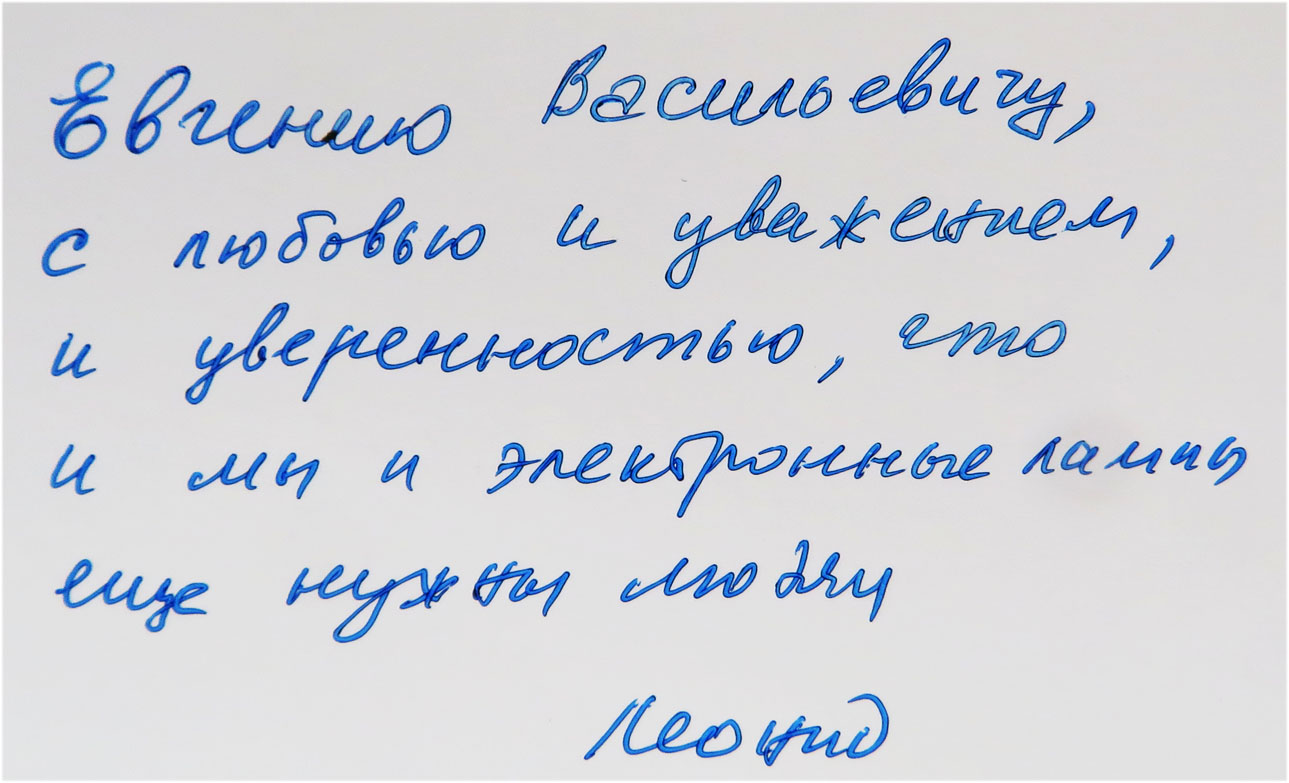 Евгению Васильевичу,
с любовью и уважением,
и уверенностью, что
и мы и электронные лампы
еще нужны людям
Леонид